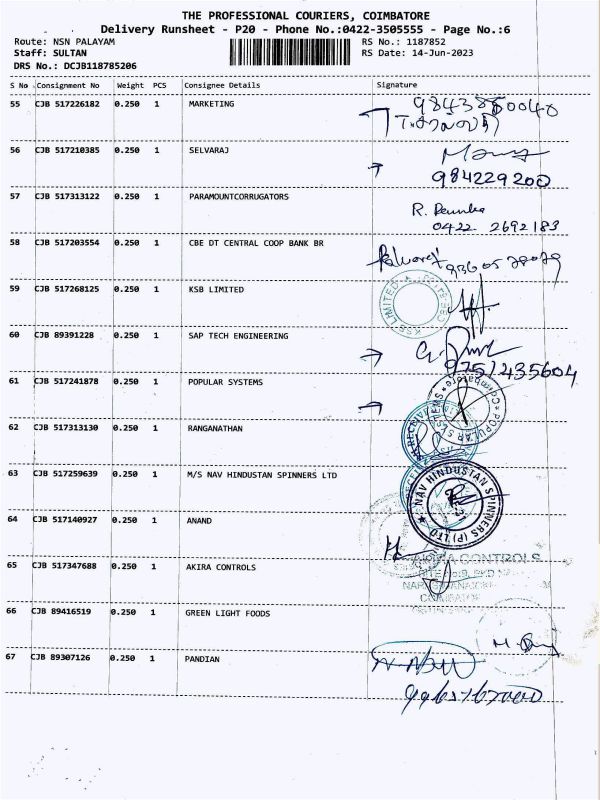 THE PROFESSIONAL COURIERS, COIMBATORE
Delivery Runsheet - P20 - Phone No.:0422-3505555 - Page No.:6
Route: NSN PALAYAM RS No.: 1187852
Staff: SULTAN RS Date: 14-Jun-2023
DRS No.: DCJB118785206
S No Consignment No Weight PCS Consignee Details Signature
55 CJB 517226182 0.250 1 MARKETING
56 CJB 517210385 0.250 1 SELVARAJ
984229200
57 CJB 517313122 0.250 1 PARAMOUNTCORRUGATORS
0422 2692183
58 CJB 517203554 0.250 1 CBE DT CENTRAL COOP BANK BR
59 CJB 517268125 0.250 1 KSB LIMITED
KSB LIMITED
60 CJB 89391228 0.250 1 SAP TECH ENGINEERING
9751435604
61 CJB 517241878 0.250 1 POPULAR SYSTEMS
POPULAR SYSTEMS Coimbatore
62 CJB 517313130 0.250 1 RANGANATHAN
63 CJB 517259639 0.250 1 M/S NAV HINDUSTAN SPINNERS LTD
NAV HINDUSTAN SPINNERS (P) LTD
64 CJB 517140927 0.250 1 ANAND
65 CJB 517347688 0.250 1 AKIRA CONTROLS
AKIRA CONTROLS
66 CJB 89416519 0.250 1 GREEN LIGHT FOODS
67 CJB 89307126 0.250 1 PANDIAN